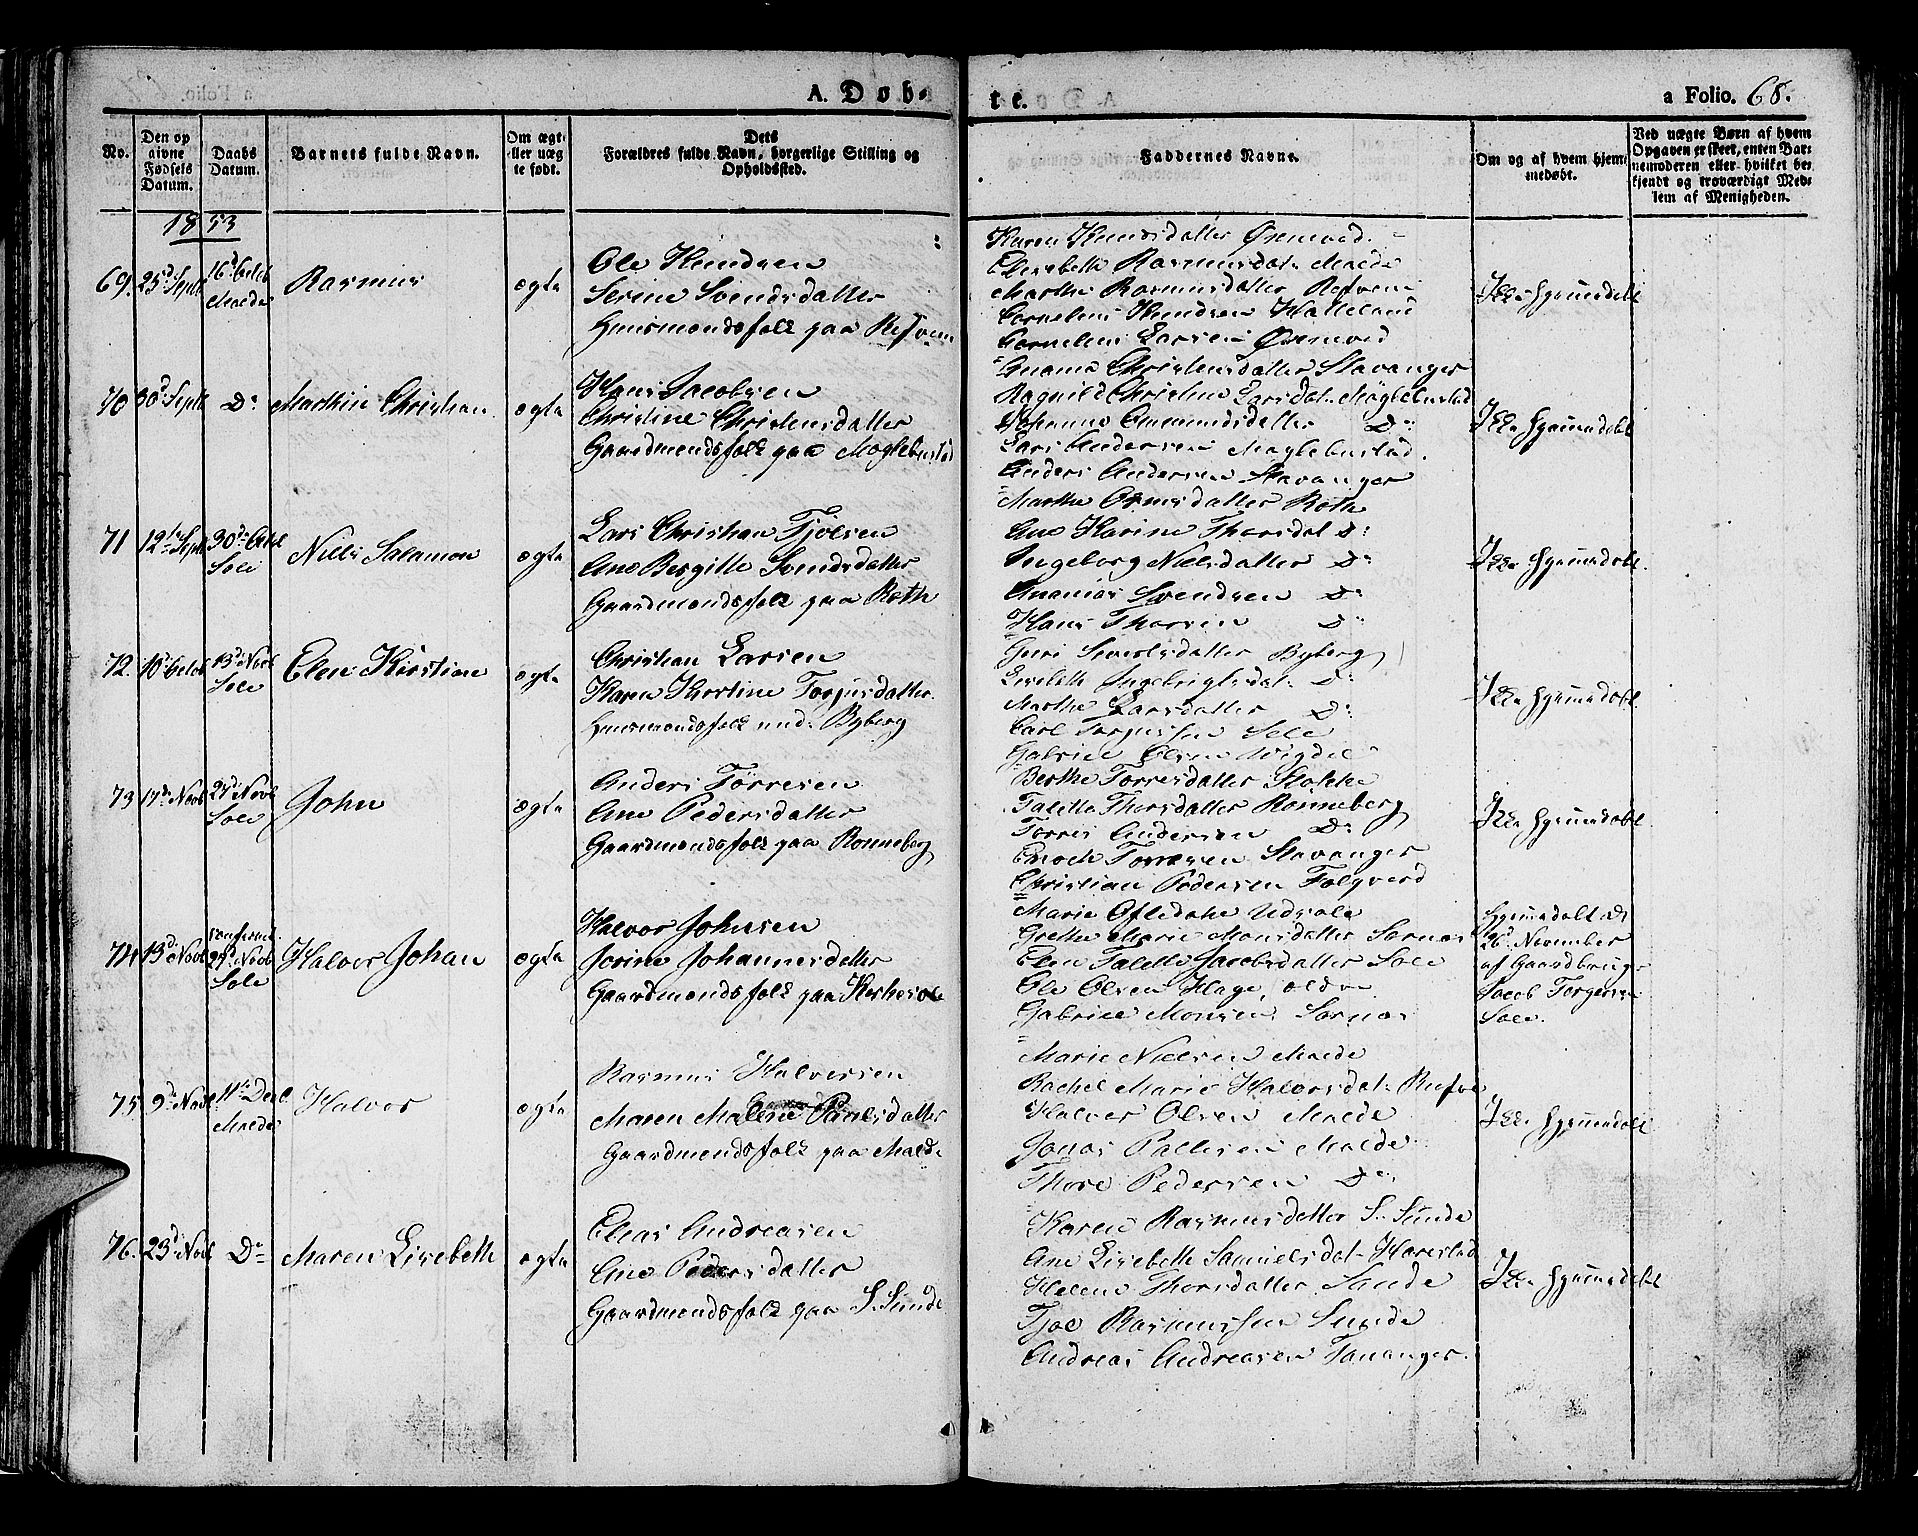 A. Døb-
te.
a Folio. 68.
No.
Den op
givne
Fødsels
Datum.
Daabs
Datum.
Barnets fulde Navn.
Om ægte
eller uæg
te født.
Dets
Forældres fulde Navn, borgerlige Stilling og
Opholdssted.
Faddernes Navne.
Om og af hvem hjem-
medøbt.
Ved uægte Børn af hvem
Opgaven er skeet, enten Bar-
nemoderen eller hvilket be-
kjendt og troværdigt Med-
lem af Menigheden.
1853
69. 25d Septb 16d Octob Malde Rasmus ægte
Ole Knudsen
Serine Svendsdatter
Huusmandsfolk paa Refsnes
Karen Knudsdatter
Elisebeth Rasmusdat. Malde
Marthe Rasmusdatter
Cornelius Knudsen Halleland
Cornelius Larsen
Ikke hjemmedøbt
70 30d Septb Do Marthin Christian ægte
Hans Jacobsen
Christine Christensdatter
Gaardmandsfolk paa Møglebustad
Christensdatter Stavanger
Ragnild Christine Larsdat. Møglebustad
Johanne Ommundsdatter Do
Lars Andersen Møglebustad.
Anders Andersen Stavanger
Ikke hjemmedøbt
71 12te Septb 30d Octb Sole Nills Salamon ægte
Lars Christian Tjølsen
Ane Bergitte Svendsdatter
Gaardmandsfolk paa Røth
Marthe Ormsdatter Røth
Ane Karine Thorsdat Do
Ingeborg Nielsdatter Do
Ananias Svendsen Do
Hans Thorsen Do
Ikke hjemmedøbt.
72. 10d Octob 13d Novb Sole Elen Kirstine ægte
Christian Larsen
Karen Kirstine Torjusdatter.
Huusmandsfolk und. Byberg
Guri Byberg
Lisebeth Ingebrigtsdat. Do
Marthe Larsdatter Do
Carl Torjussen Sole
Gabriel Olsen Vigdel
Ikke hjemmedøbt
73 17de Novb 27d Novb Sole John ægte
Anders Tørresen
Ane Pedersdatter
Gaardmandsfolk paa Rønneberg
Berthe Torresdatter Stokke
Talette Thorsdatter Rønneberg
Torres Andersen Do
Enoch Torresen Stavanger
Christian Pedersen
Ikke hjemmedøbt
74 13d Novb 27d Novb Sole Halvor Johan ægte
Halvor Johnsen
Jorine Johannesdatter
Gaardmandsfolk paa
Marie
Grethe Marie Monsdatter Sørnæs
Elen Talette Jacobsdatter Sole
Ole Olsen
Gabriel Monsen Sørnæs
Hjemmedøbt d.
26d November
af Gaardbruger
Jacob Torgersen
Sole.
75 9d Novb 11te Decb Malde Halvor ægte
Rasmus Halvorsen
Maren Malene Paulsdatter
Gaardmandsfolk paa Malde
Marie Nielsen Malde
Rachel Marie Halvorsdat.
Halvor Olsen Malde
Jonas Pallesen Malde
Thore Pedersen Do
Ikke hjemmedøbt
76. 23d Novb Do Maren Lisebeth ægte
Elias Andreasen
Ane Pedersdatter
Gaardmandsfolk paa S. Sunde
Karen Rasmusdatter S. Sunde
Ane Lisebeth Samuelsdat. Harestad
Helene Thorsdatter Sunde
Tjøl Rasmussen Sunde
Andreas Andreasen Tananger.
Ikke hjemmedøbt